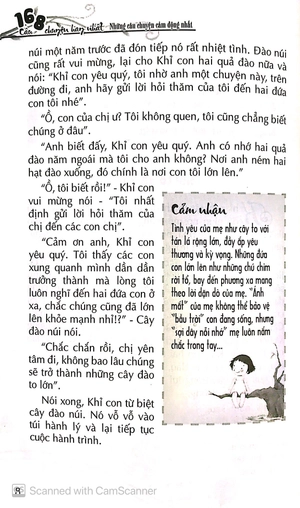 168
Câu chuyện hay nhất Những câu chuyện cảm động nhất
núi một năm trước đã đón tiếp nó rất nhiệt tình. Đào núi
cũng rất vui mừng, lại cho Khỉ con hai quả đào nữa và
nói: “Khỉ con yêu quý, tôi nhờ anh một chuyện này, trên
đường đi, anh hãy gửi lời hỏi thăm của tôi đến hai đứa
con tôi nhé”.
“Ồ, con của chị ư? Tôi không quen, tôi cũng chẳng biết
chúng ở đâu”.
“Anh biết đấy, Khỉ con yêu quý. Anh có nhớ hai quả
đào năm ngoái mà tôi cho anh không? Nơi anh ném hai
hạt đào xuống, đó chính là nơi con tôi lớn lên.”
“Ồ, tôi biết rồi!” - Khỉ con
vui mừng nói - “Tôi nhất
định gửi lời hỏi thăm của
chị đến các con chị”.
“Cảm ơn anh, Khỉ con
yêu quý. Tôi thấy các con
xung quanh mình dần dần
trưởng thành mà lòng tôi
luôn nghĩ đến hai đứa con ở
xa, chắc chúng cũng đã lớn
lên khỏe mạnh nhỉ!?” - Cây
đào núi nói.
“Chắc chắn rồi, chị yên
tâm đi, không bao lâu chúng
sẽ trở thành những cây đào
to lớn”.
Nói xong, Khỉ con từ biệt
cây đào núi. Nó vỗ vỗ vào
túi hành lý và lại tiếp tục
cuộc hành trình.
Cảm nhận
Tình yêu của mẹ như cây to với
tán lá rộng lớn, đầy ắp yêu
thương và kỳ vọng. Những đứa
con lớn lên như những chú chim
rời tổ, bay đến phương xa mang
theo lời dặn dò của mẹ. “Ánh
mắt” của mẹ không thể bảo vệ
“bầu trời” con đang sống, nhưng
“sợi dây nỗi nhớ” mẹ luôn nắm
chắc trong tay...
Scanned with CamScanner